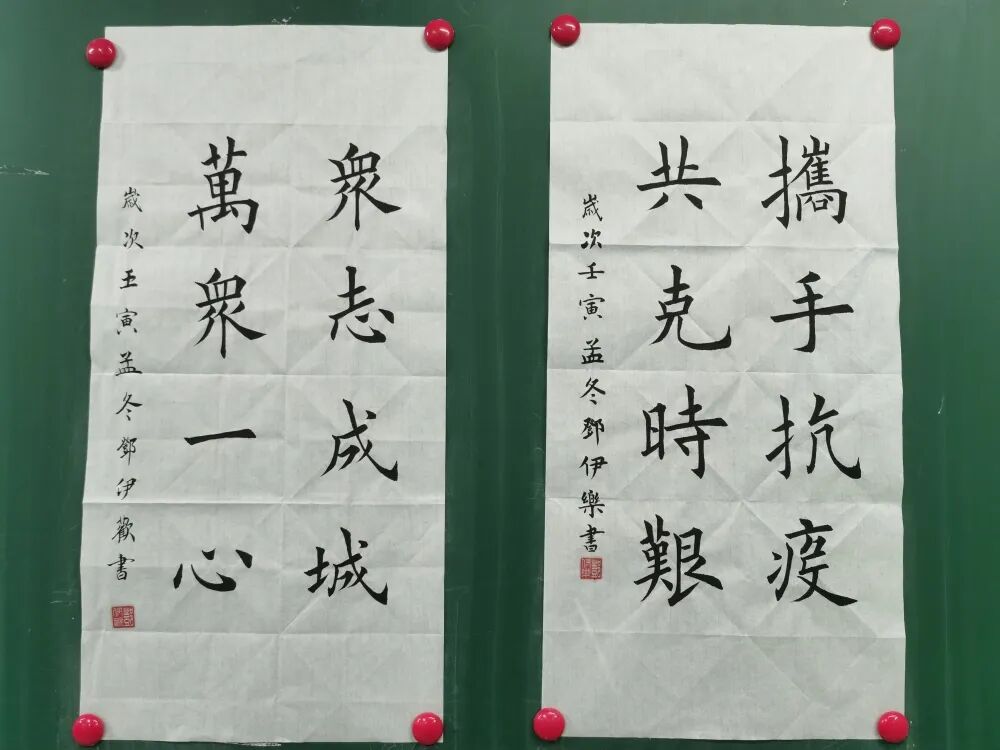 攜手抗疫
共克時艱
歲次壬寅孟冬鄧伊樂書
衆志成城
萬衆一心
歲次王寅孟冬鄧伊歡書